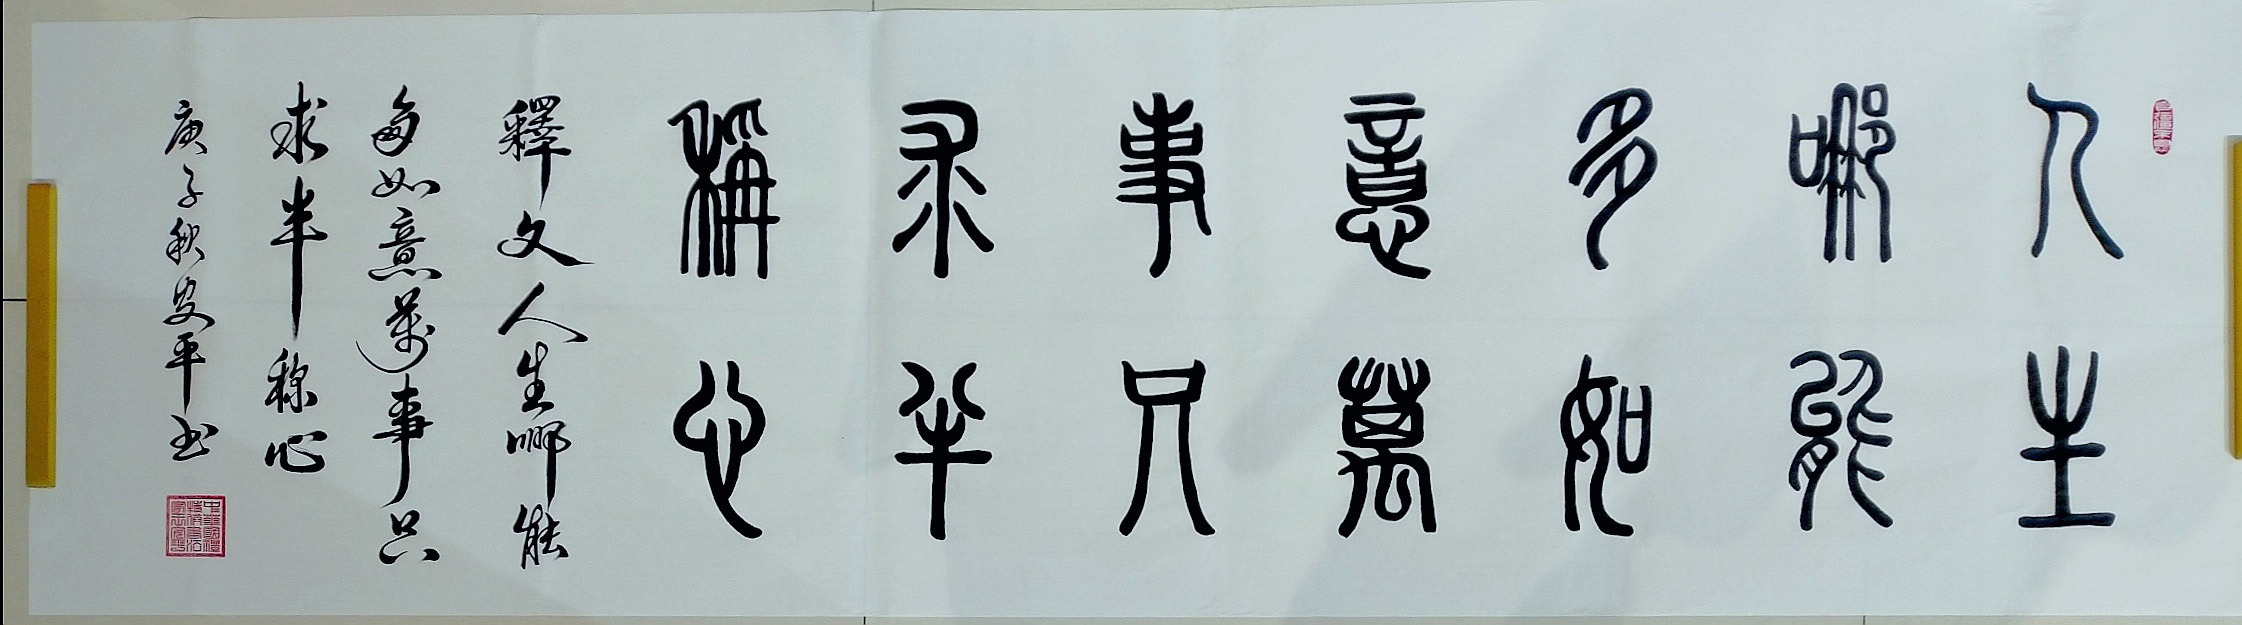 人生
哪能
多如
意萬
事只
求半
稱心
釋文人生哪能
多如意萬事只
求半称心
庚子秋安平书